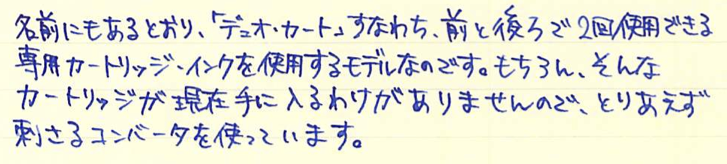 名前にもあるとおり、「デュオ・カート」すなわち、前と後ろで2回使用できる
専用カートリッジ・インクを使用するモデルなのです。もちろん、そんな
カートリッジが現在手に入るわけがありませんので、とりあえず
刺さるコンバータを使っています。